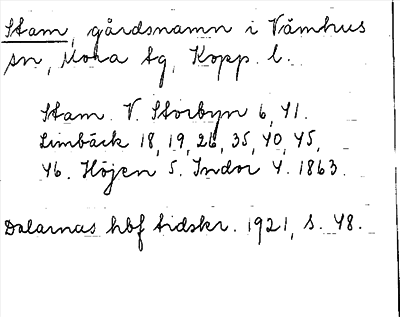 Stam, gårdsnamn i Våmhus
sn, Mora tg, Kopp. l.
Stam. V. Storbyn 6, 41.
Limbäck 18, 19, 26, 35, 40, 45,
46. Höjen 5. Indor 4. 1863.
Dalarnas hbf tidskr. 1921, s. 48.